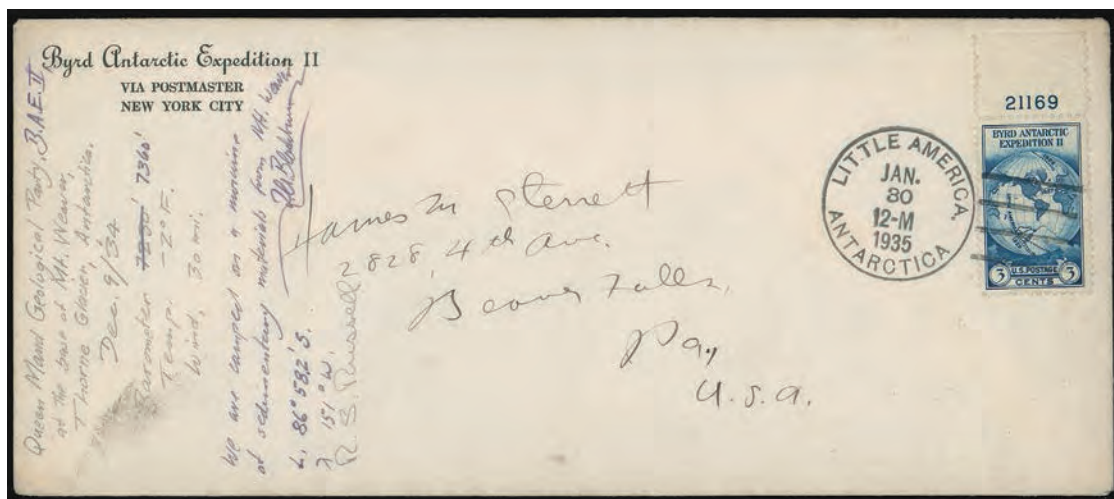 Byrd Antarctic Expedition II
VIA POSTMASTER
NEW YORK CITY
Queen Maud Geological Party, B.A.E. II,
at the base of Mt. Weaver,
Thorne Glacier, Antarctica.
Dec. 9/34
Barometer 7360'
Temp. -2° F.
Wind, 30 mi.
We are camped on a moraine
of sedimentary materials from Mt. Weaver
L. 86° 58.2' S.
λ 151° W.
R. S. Russell
James M Sterrett
2828, 4th Ave.
Beaver Falls,
Pa,
U.S.A.
LITTLE AMERICA,
JAN.
30
12-M
1935
ANTARCTICA
21169
BYRD ANTARCTIC
EXPEDITION II
3 U.S. POSTAGE 3
CENTS